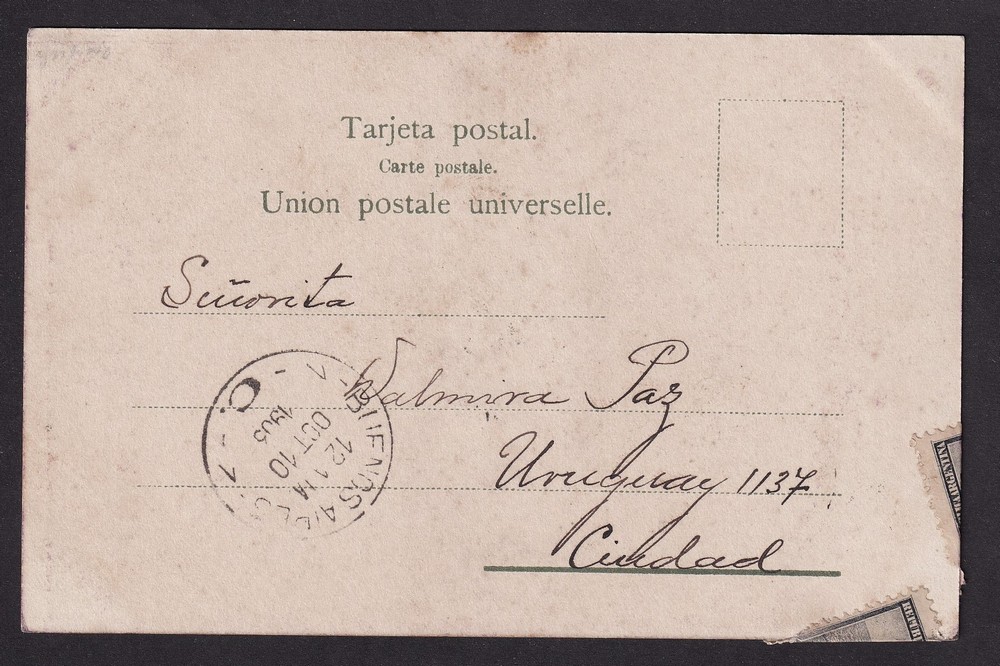 Tarjeta postal.
Carte postale.
Union postale universelle.
Señorita
Valmira Paz
Uruguay 1137
Ciudad
BUENOS AIRES
12 M
OCT 10
1905
REPUB